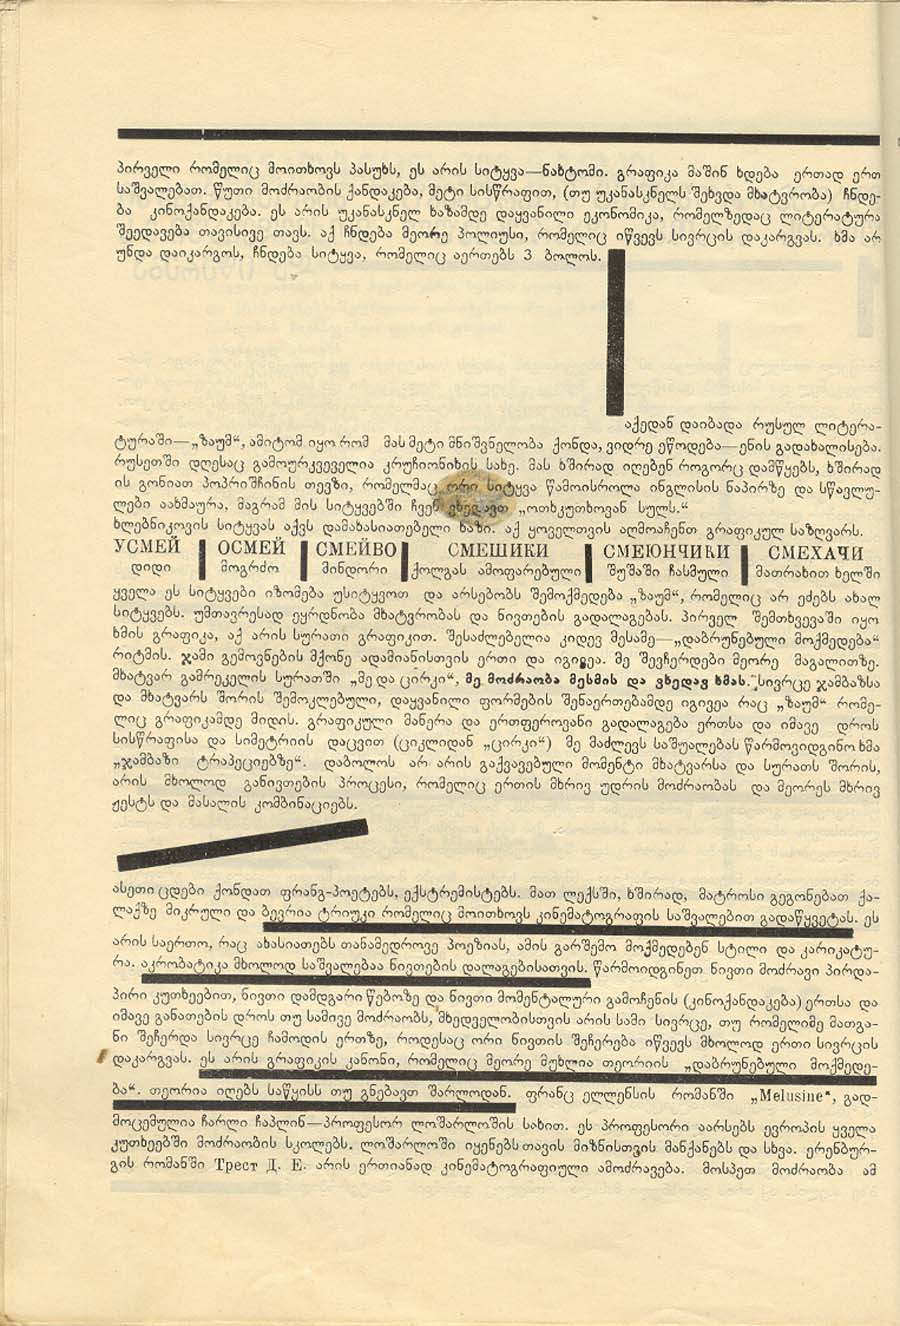 პირველი რომელიც მოითხოვს პასუხს, ეს არის სიტყვა—ნახტომი. გრაფიკა მაშინ ხდება ერთად ერთ
საშვალებათ. წუთი მოძრაობის ქანდაკება, მეტი სისწრაფით, (თუ უკანასკნელს შეხვდა მხატვრობა) ჩნდე-
ბა კინოქანდაკება. ეს არის უკანასკნელ ხაზამდე დაყვანილი ეკონომიკა, რომელზედაც ლიტერატურა
შეედავება თავისივე თავს. აქ ჩნდება მეორე პოლიუსი, რომელიც იწვევს სივრცის დაკარგვას. ხმა არ
უნდა დაიკარგოს, ჩნდება სიტყვა, რომელიც აერთებს 3 ბოლოს.
აქედან დაიბადა რუსულ ლიტერა-
ტურაში—„ზაუმ“, ამიტომ იყო რომ მას მეტი მნიშვნელობა ქონდა, ვიდრე ეწოდება—ენის გადახალისება.
რუსეთში დღესაც გამოურკვეველია კრუჩიონიხის სახე. მას ხშირად იღებენ როგორც დამწყებს, ხშირად
ის გონიათ პოპრიშჩინის თევზი, რომელმაც ორი სიტყვა წამოისროლა ინგლისის ნაპირზე და სწავლუ-
ლები აახმაურა, მაგრამ მის სიტყვებში ჩვენ ვხედავთ „ოთხკუთხოვან სულს.“
ხლებნიკოვის სიტყვას აქვს დამახასიათებელი ხაზი. აქ ყოველთვის აღმოაჩენთ გრაფიკულ საზღვარს.
УСМЕЙ ОСМЕЙ СМЕЙВО СМЕШИКИ СМЕЮНЧИКИ СМЕХАЧИ
დიდი მოგრძო მინდორი ქოლგას ამოფარებული შუშაში ჩასმული მათრახით ხელში
ყველა ეს სიტყვები იზომება უსიტყვოთ და არსებობს შემოქმედება „ზაუმ“, რომელიც არ ეძებს ახალ
სიტყვებს. უმთავრესად ეყრდნობა მხატვრობას და ნივთების გადალაგებას. პირველ შემთხვევაში იყო
ხმის გრაფიკა, აქ არის სურათი გრაფიკით. შესაძლებელია კიდევ მესამე—„დაბრუნებული მოქმედება“
რიტმის. ჯამი გემოვნების მქონე ადამიანისთვის ერთი და იგივეა. მე შევჩერდები მეორე მაგალითზე.
მხატვარ გამრეკელის სურათში „მე და ცირკი“, მე მოძრაობა მესმის და ვხედავ ხმას. სივრცე ჯამბაზსა
და მხატვარს შორის შემოკლებული, დაყვანილი ფორმების შენაერთებამდე იგივეა რაც „ზაუმ“ რომე-
ლიც გრაფიკამდე მიდის. გრაფიკული მანერა და ერთფეროვანი გადალაგება ერთსა და იმავე დროს
სისწრაფისა და სიმეტრიის დაცვით (ციკლიდან „ცირკი“) მე მაძლევს საშუალებას წარმოვიდგინო ხმა
„ჯამბაზი ტრაპეციებზე“. დაბოლოს არ არის გაქვავებული მომენტი მხატვარსა და სურათს შორის,
არის მხოლოდ განივთების პროცესი, რომელიც ერთის მხრივ უდრის მოძრაობას და მეორეს მხრივ
ჟესტს და მასალის კომბინაციებს.
ასეთი ცდები ქონდათ ფრანგ-პოეტებს, ექსტრემისტებს. მათ ლექსში, ხშირად, მატროსი გეგონებათ ქა-
ლაქზე მიკრული და ბევრია ტრიუკი რომელიც მოითხოვს კინემატოგრაფის საშვალებით გადაწყვეტას. ეს
არის საერთო, რაც ახასიათებს თანამედროვე პოეზიას, ამის გარშემო მოქმედებენ სტილი და კარიკატუ-
რა. აკრობატიკა მხოლოდ საშვალებაა ნივთების დალაგებისათვის. წარმოიდგინეთ ნივთი მოძრავი პირდა-
პირი კუთხეებით, ნივთი დამდგარი წებოზე და ნივთი მომენტალური გამოჩენის (კინოქანდაკება) ერთსა და
იმავე განათების დროს თუ სამივე მოძრაობს, მხედველობისთვის არის სამი სივრცე, თუ რომელიმე მათგა-
ნი შეჩერდა სივრცე ჩამოდის ერთზე, როდესაც ორი ნივთის შეჩერება იწვევს მხოლოდ ერთი სივრცის
დაკარგვას. ეს არის გრაფიკის კანონი, რომელიც მეორე მუხლია თეორიის „დაბრუნებული მოქმედე-
ბა“. თეორია იღებს საწყისს თუ გნებავთ შარლოდან. ფრანც ელლენსის რომანში „Melusine“, გად-
მოცემულია ჩარლი ჩაპლინ—პროფესორ ლოშარლოშის სახით. ეს პროფესორი აარსებს ევროპის ყველა
კუთხეებში მოძრაობის სკოლებს. ლოშარლოში იყენებს თავის მიზნისთვის მანქანებს და სხვა. ერენბურ-
გის რომანში Трест Д. Е. არის ერთიანად კინემატოგრაფიული ამოძრავება. მოსპეთ მოძრაობა ამ